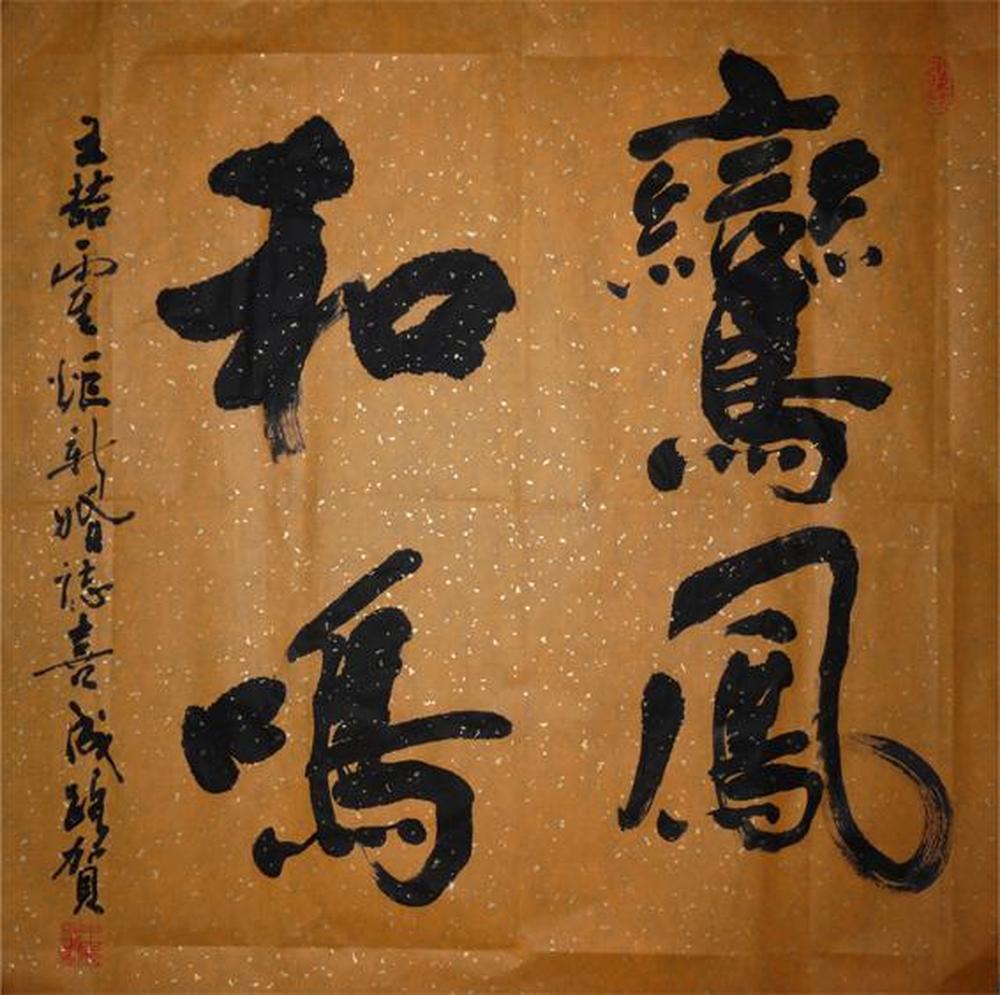 鸞鳳
和鳴
王喆霍炬新婚誌喜成雄賀